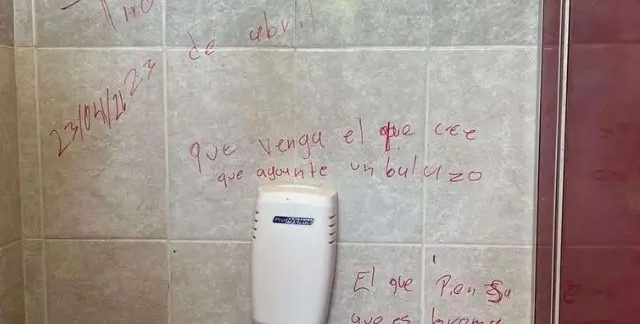 Tiro
de abril
23
23/04/26
que venga el que cree
que aguante un balazo
ProHygiene
El que Piensa
que es broma